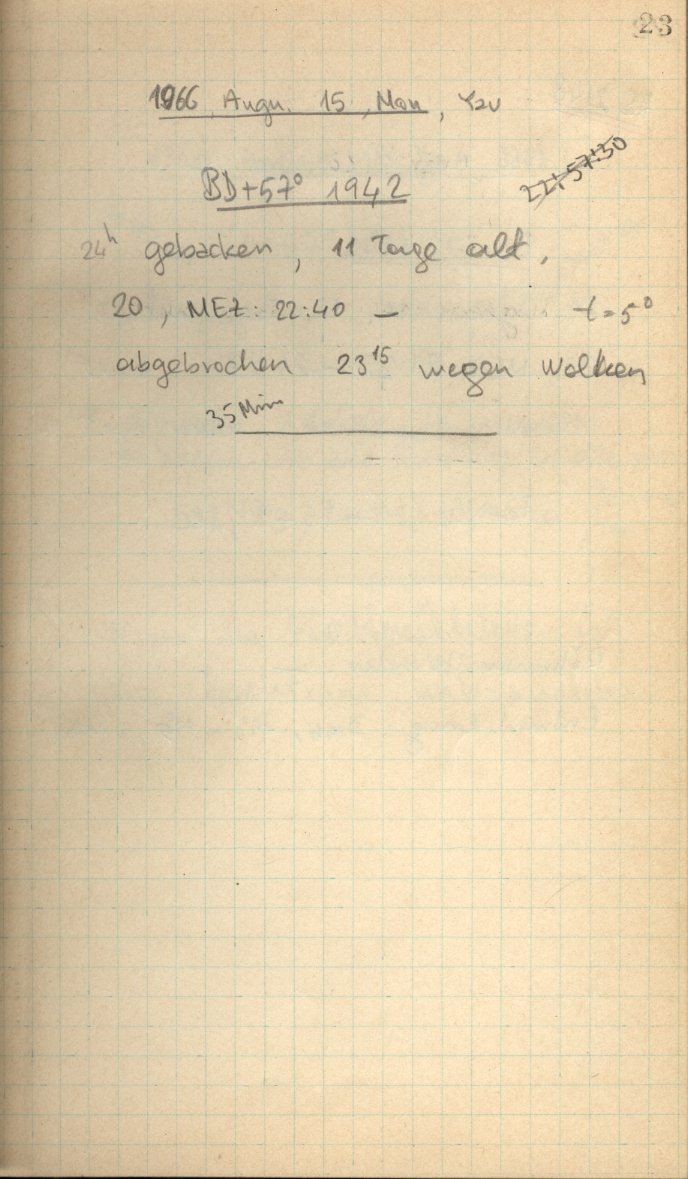 23
1966, Augu. 15, Mon,
BD+57° 1942
22:57:30
24ʰ gebacken, 11 Tage alt,
20, MEZ: 22:40 — t=5°
abgebrochen 23¹⁵ wegen Wolken
35 Min